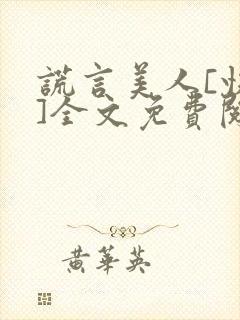 謊言美人[
]全文免費閱
黃華英